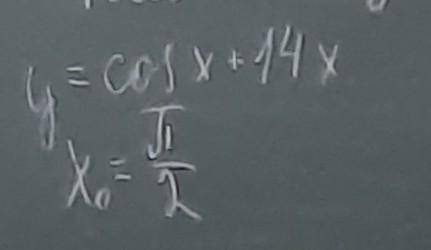 y = cos x + 14 x
x₀ = π/2